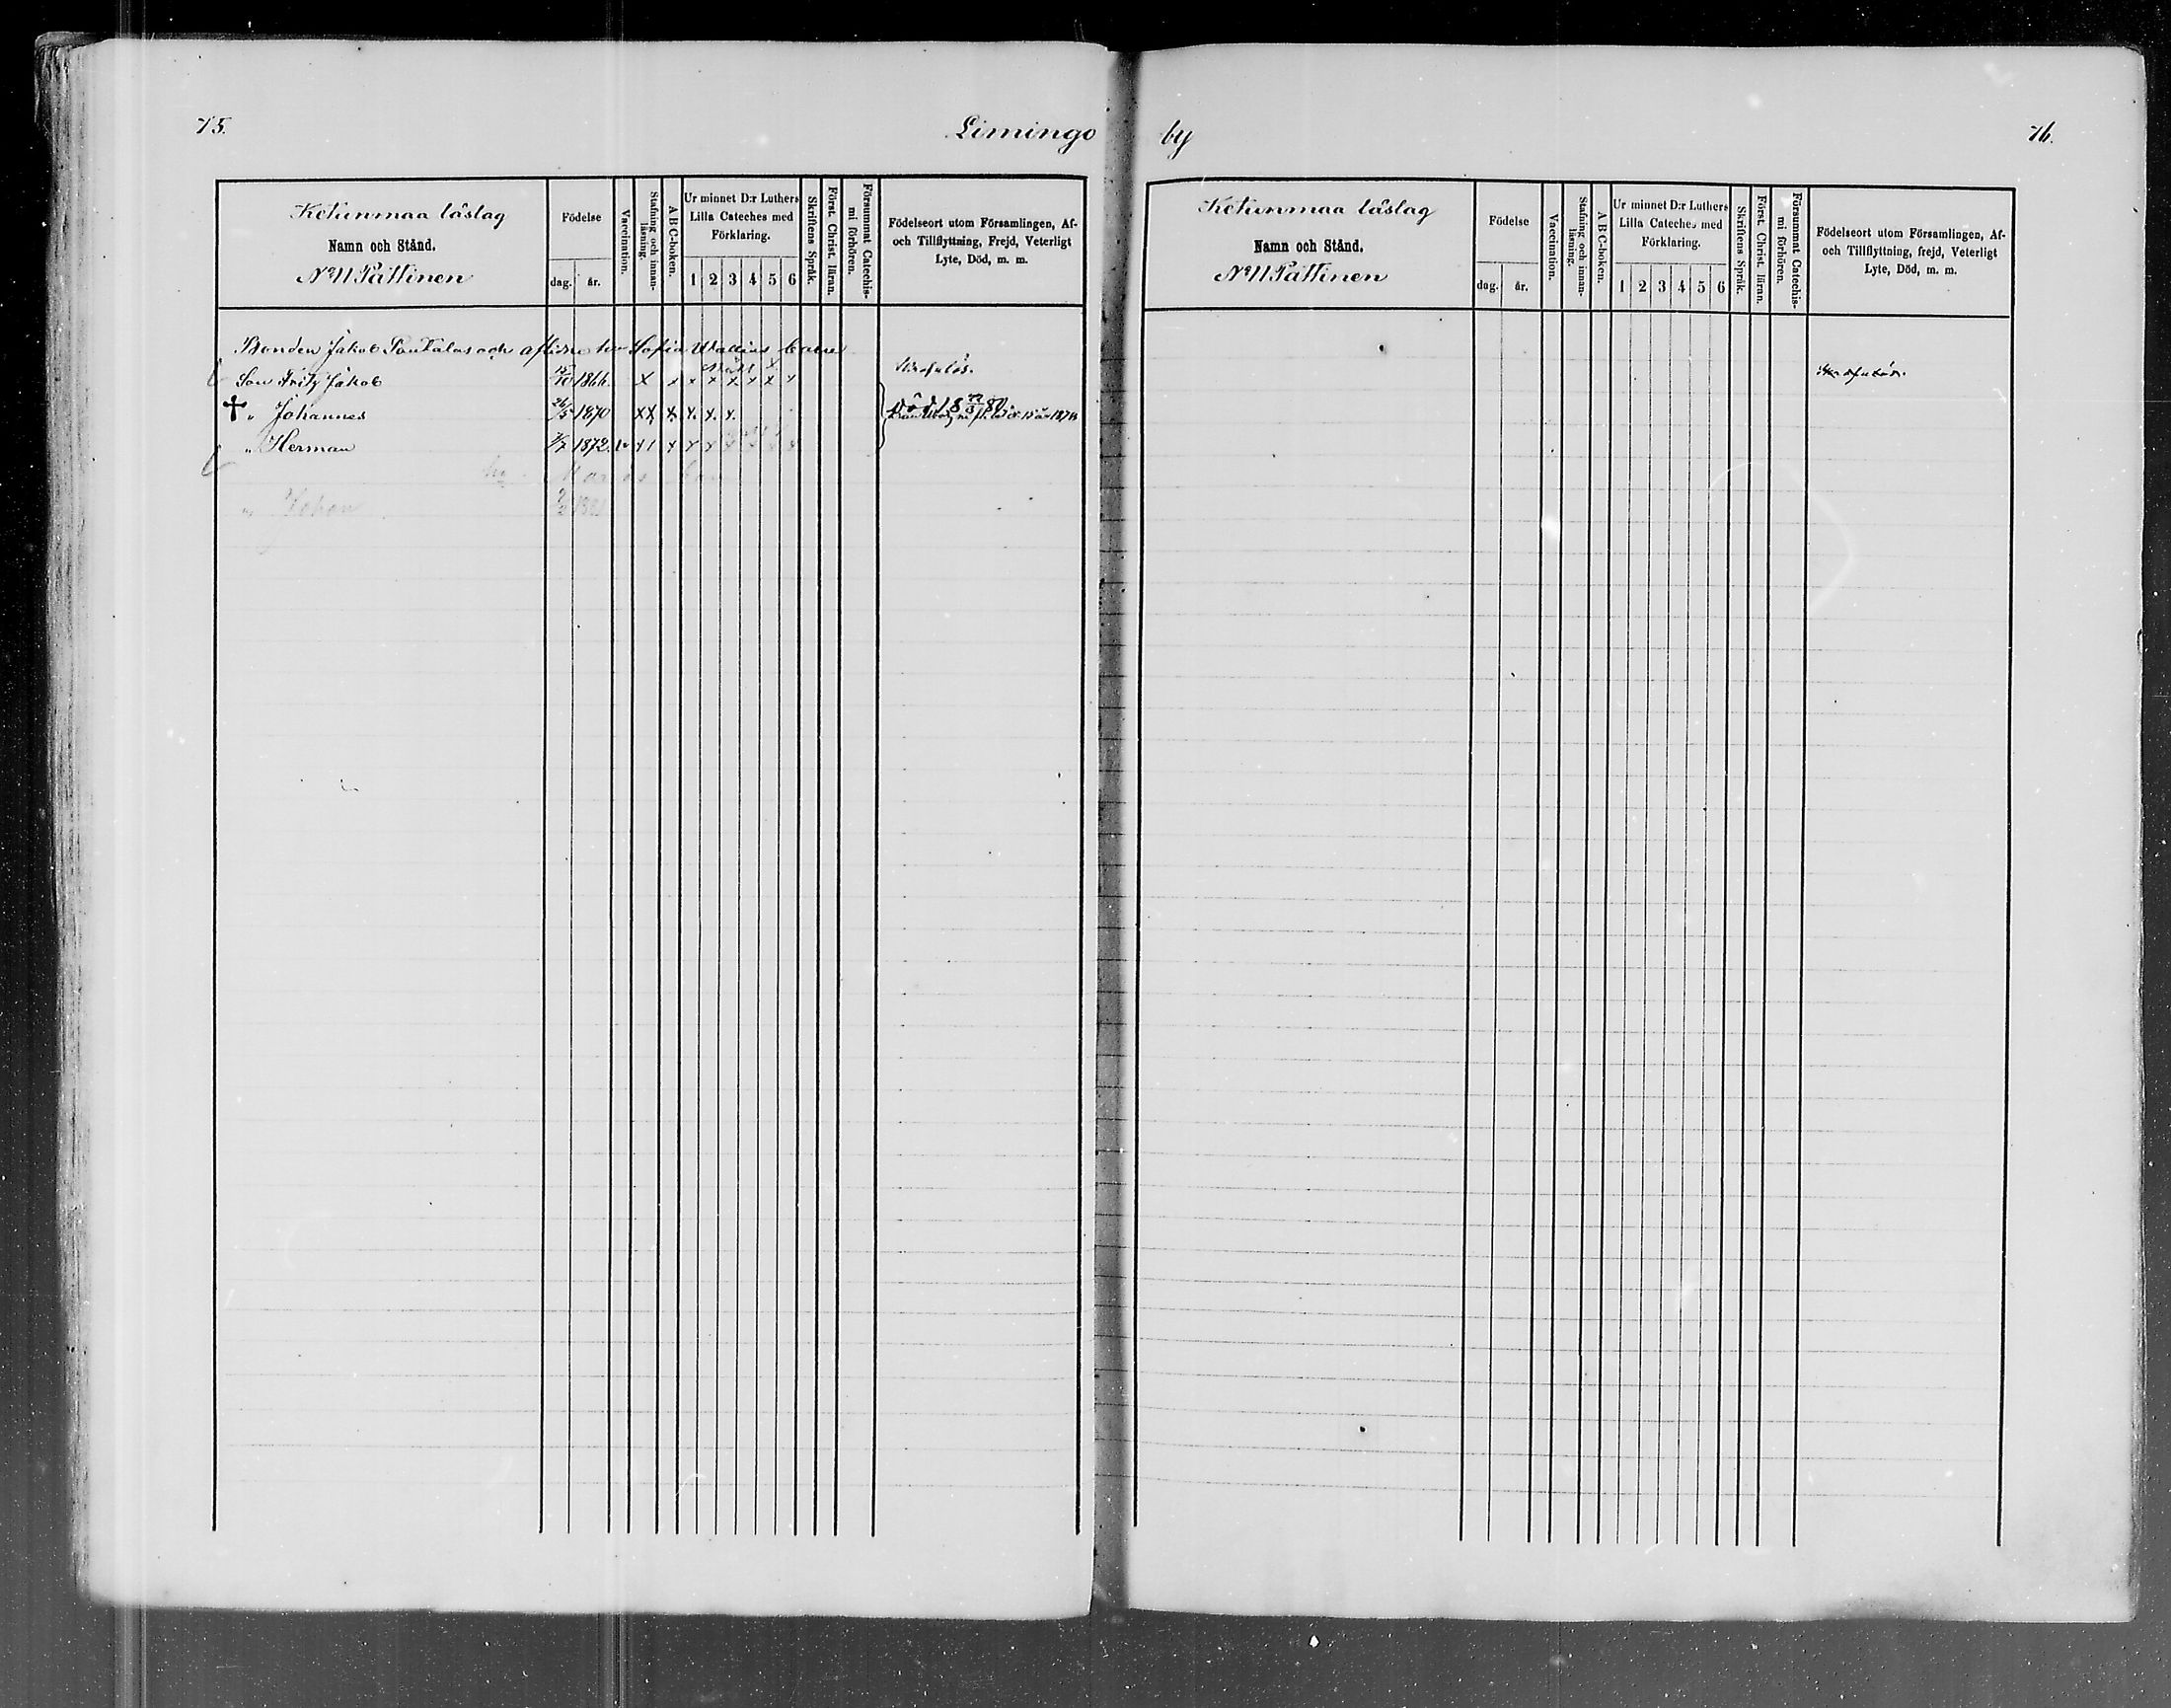 75.
Limingo by
76.
Ketunmaa läslag
Namn och Stånd.
No 11 Pättinen
Födelse
dag. år.
Vaccination.
Stafning och innan-
läsning.
A B C-boken.
Ur minnet D:r Luthers
Lilla Cateches med
Förklaring.
1 2 3 4 5 6
Skriftens Språk.
Först. Christ. läran.
Försummat Catechis-
mi förhören.
Födelseort utom Församlingen, Af-
och Tillflyttning, Frejd, Veterligt
Lyte, Död, m. m.
Bonden Jakob och aflidne Sofia barn
Son Fritz Jakob 15/10 1866. x x x x x x x x
" Johannes 26/5 1870 x x x x x x död 80.
" Herman 1872. v x 1 x x x x x x x
Marias
" Johan
Ketunmaa läslag
Namn och Stånd.
No 11 Pättinen
Födelse
dag. år.
Vaccination.
Stafning och innan-
läsning.
A B C-boken.
Ur minnet D:r Luthers
Lilla Cateches med
Förklaring.
1 2 3 4 5 6
Skriftens Språk.
Först. Christ. läran.
Försummat Catechis-
mi förhören.
Födelseort utom Församlingen, Af-
och Tillflyttning, frejd, Veterligt
Lyte, Död, m. m.